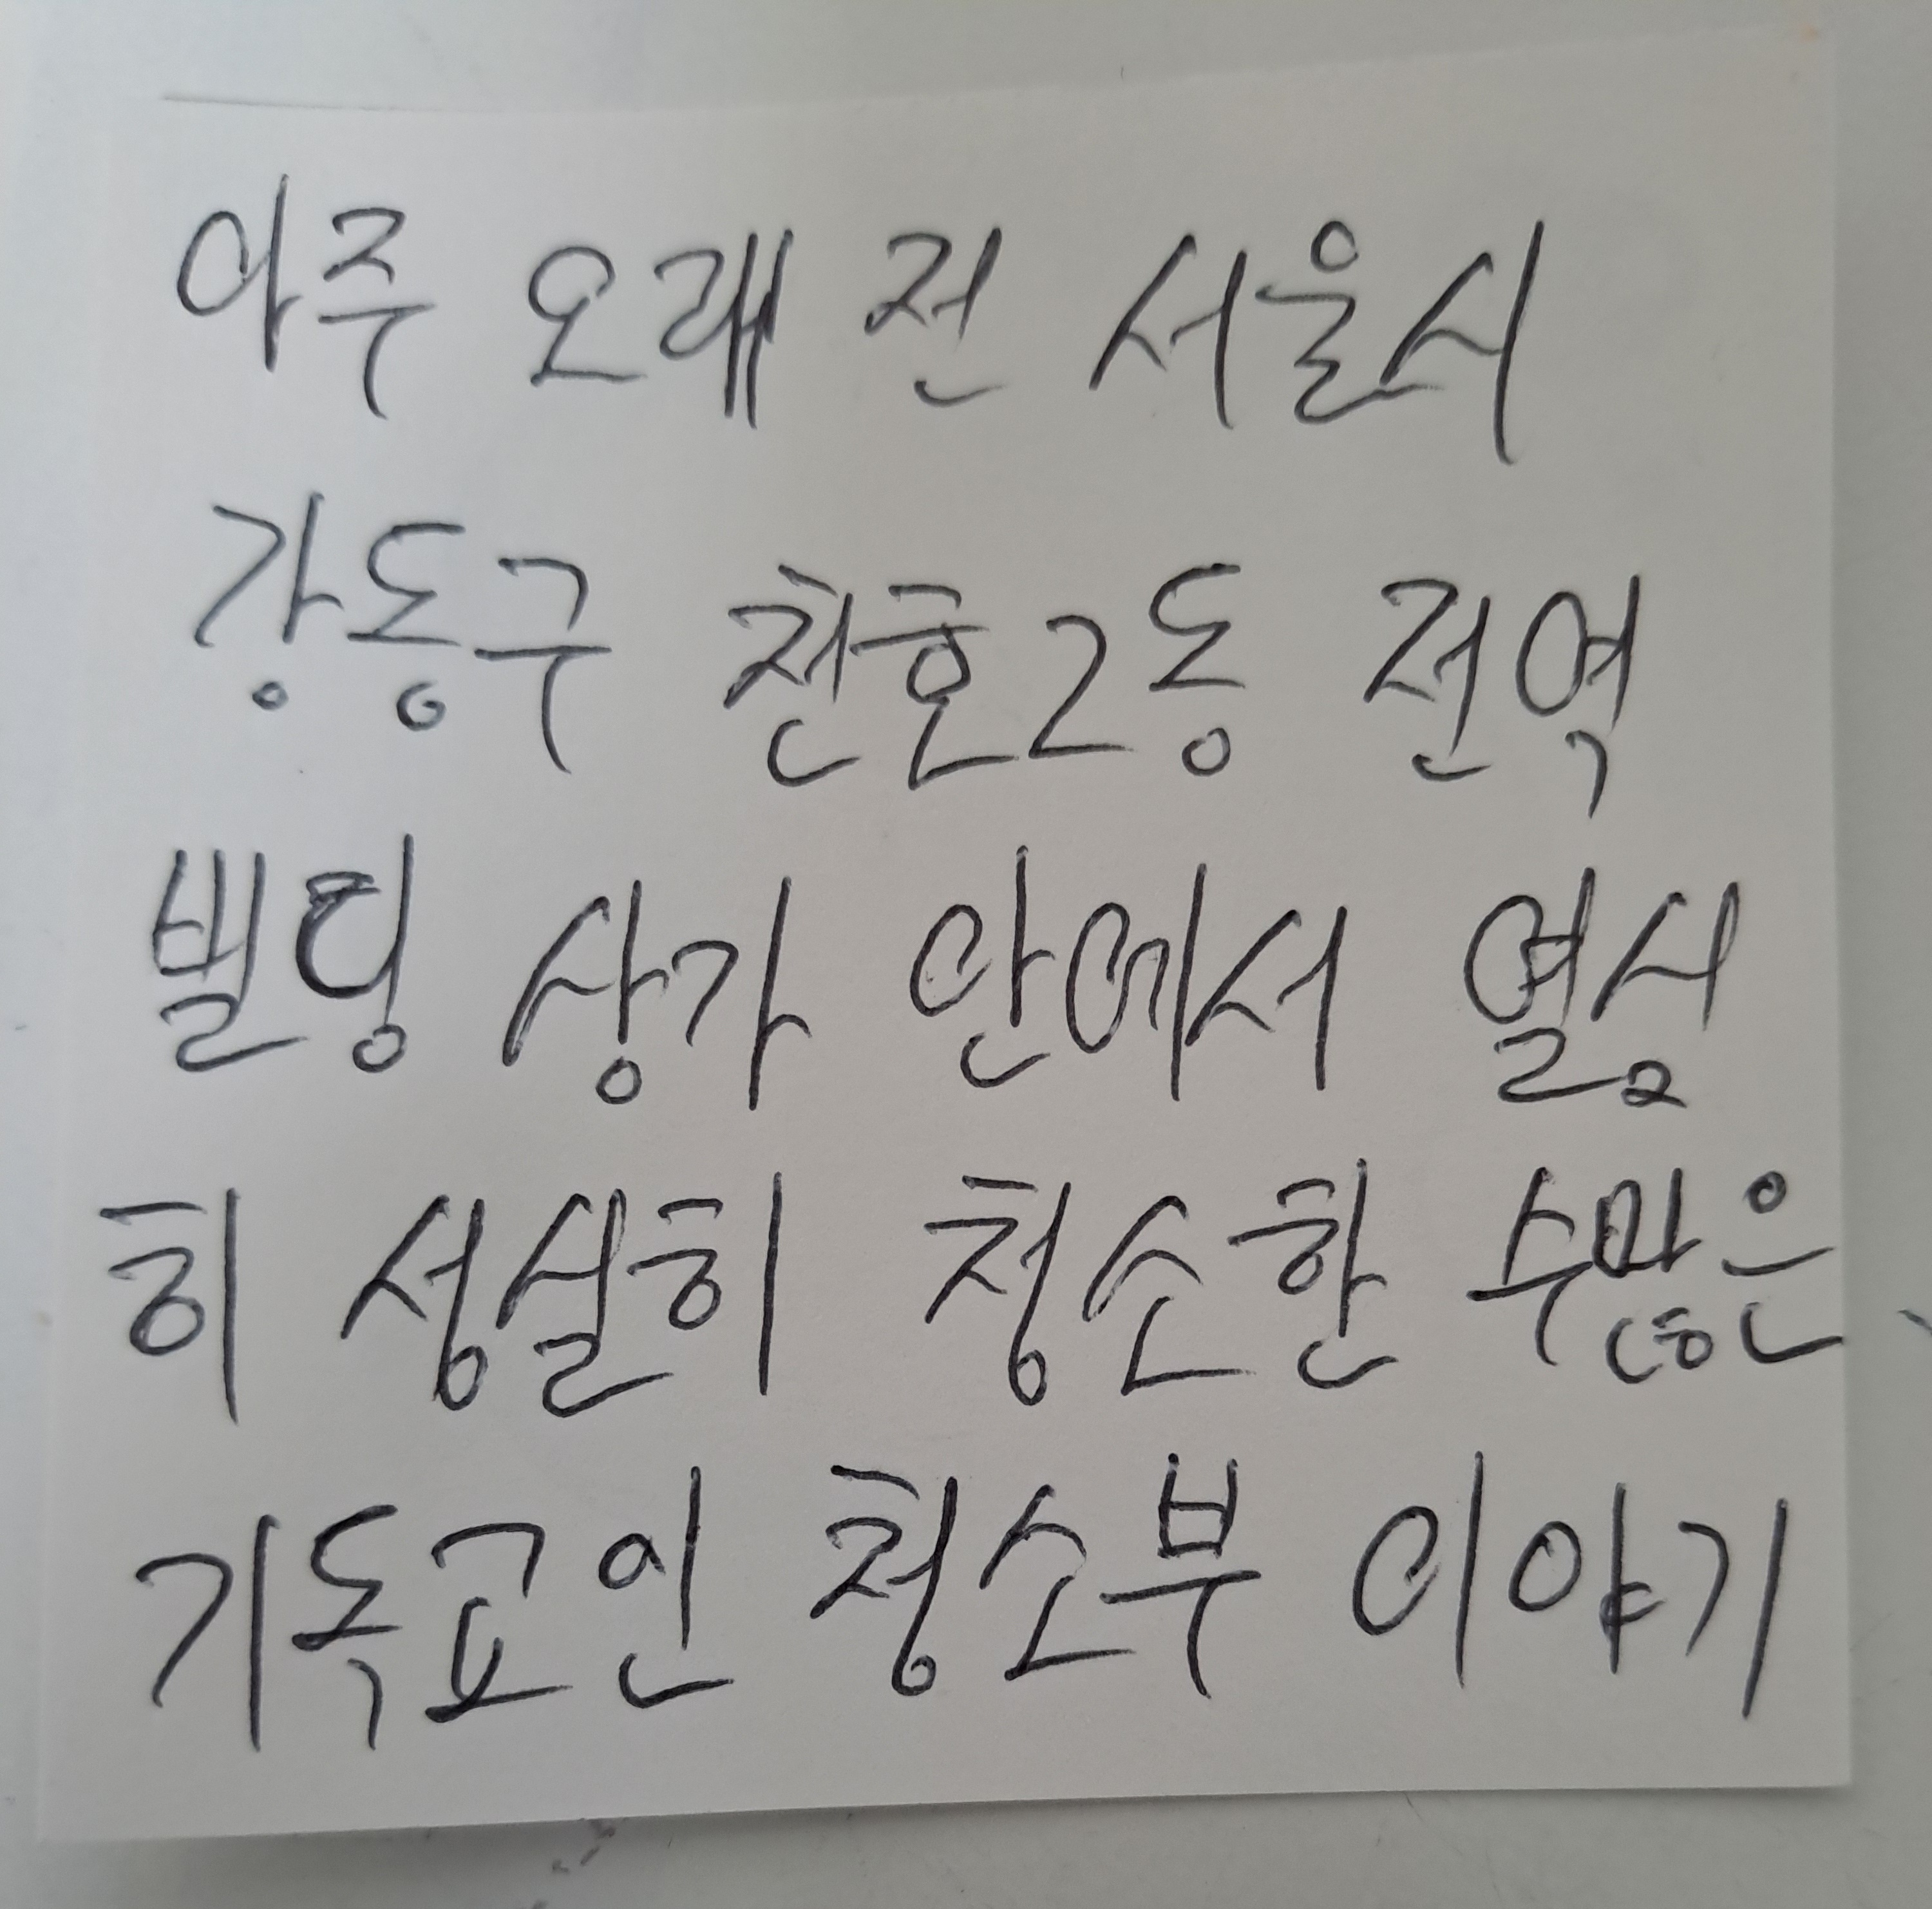 아주 오래 전 서울시
강동구 천호2동 전역
빌딩 상가 안에서 열심
히 성실히 청소한 수많은
기독교인 청소부 이야기